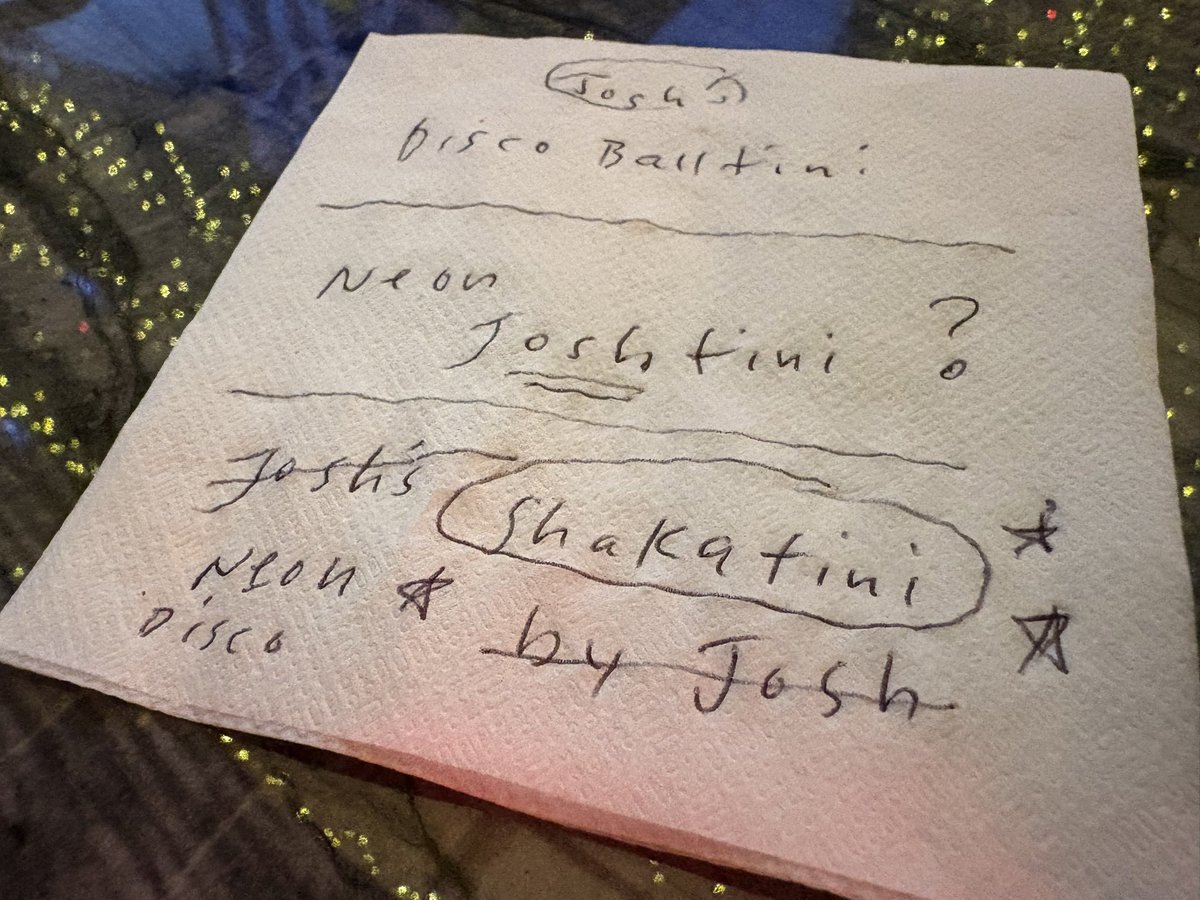 Josh's
Disco Balltini
Neon
Joshtini ?
Josh's Shakatini
Neon
Disco
by Josh